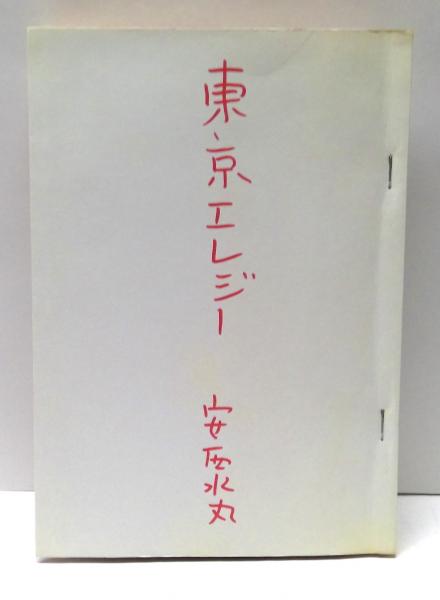 東京エレジー
安西水丸